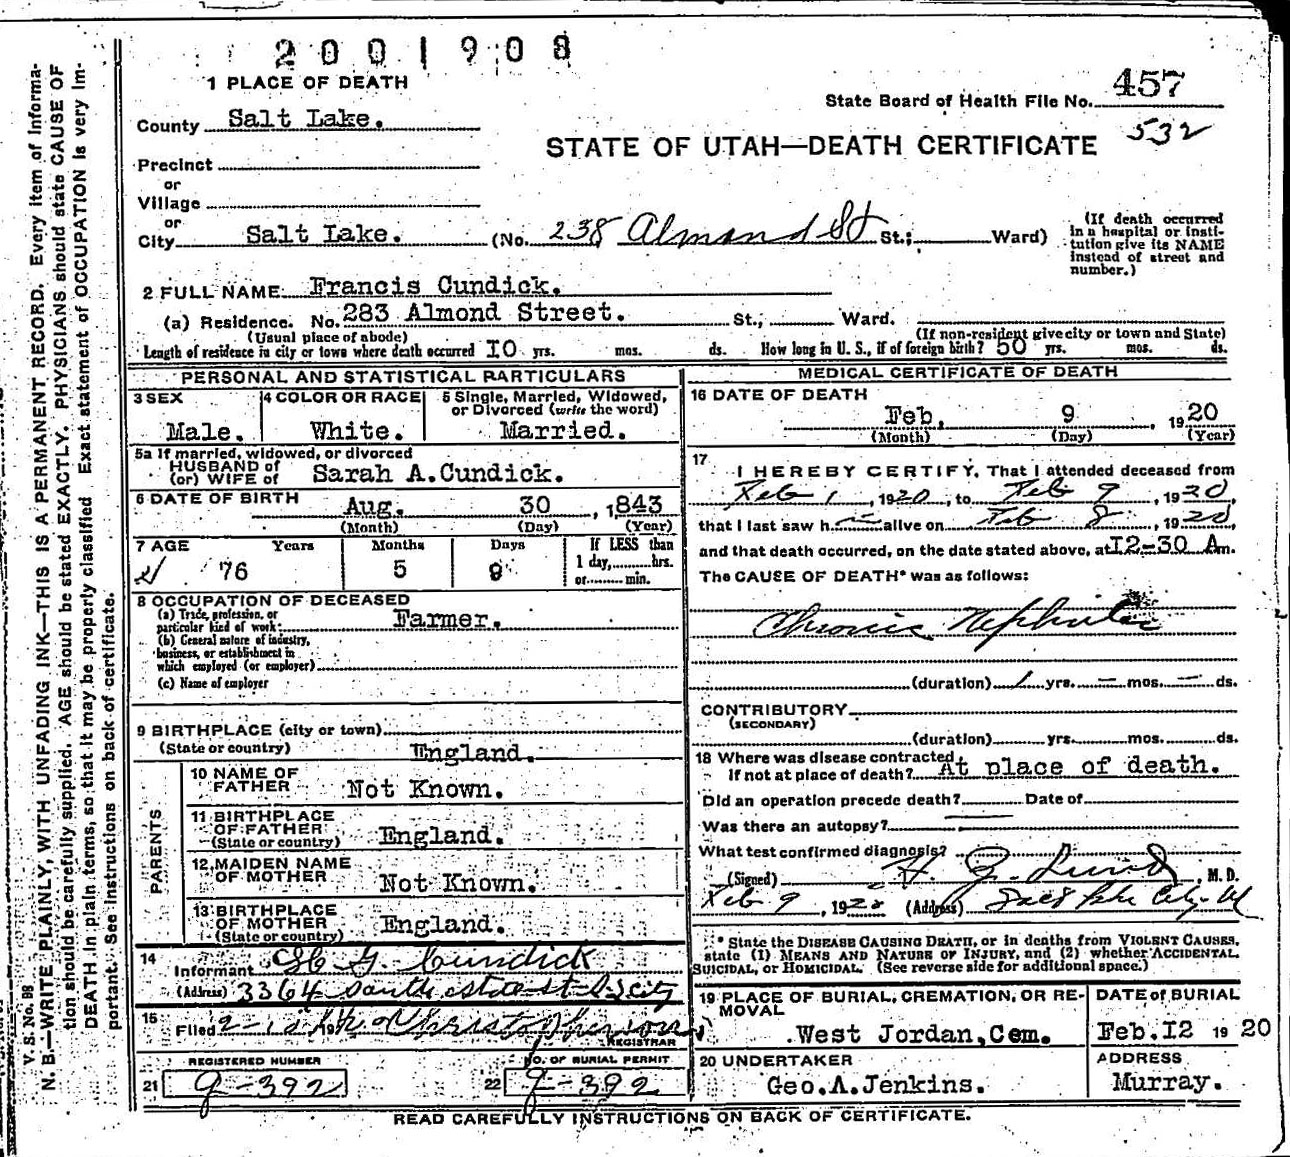 2001908
1 PLACE OF DEATH
State Board of Health File No. 457
County Salt Lake.
532
STATE OF UTAH—DEATH CERTIFICATE
Precinct
or
Village
or
City Salt Lake. (No. 238 Almond St St.; Ward)
(If death occurred in a hospital or insti-
tution give its NAME
instead of street and
number.)
2 FULL NAME Francis Cundick.
(a) Residence. No. 283 Almond Street. St., Ward.
(Usual place of abode) (If non-resident give city or town and State)
Length of residence in city or town where death occurred IO yrs. mos. ds. How long in U. S., if of foreign birth? 50 yrs. mos. ds.
PERSONAL AND STATISTICAL PARTICULARS
3 SEX
Male.
4 COLOR OR RACE
White.
5 Single, Married, Widowed,
or Divorced (write the word)
Married.
5a If married, widowed, or divorced
HUSBAND of
(or) WIFE of Sarah A.Cundick.
6 DATE OF BIRTH
Aug. 30, 1843
(Month) (Day) (Year)
7 AGE Years Months Days If LESS than
1 day, hrs.
or min.
76 5 9
8 OCCUPATION OF DECEASED
(a) Trade, profession, or
particular kind of work Farmer.
(b) General nature of industry,
business, or establishment in
which employed (or employer)
(c) Name of employer
9 BIRTHPLACE (city or town)
(State or country) England.
PARENTS
10 NAME OF
FATHER Not Known.
11 BIRTHPLACE
OF FATHER England.
(State or country)
12 MAIDEN NAME
OF MOTHER Not Known.
13 BIRTHPLACE
OF MOTHER England.
(State or country)
14
Informant Cundick
(Address) 3364 South State St
15
Filed Christopherson
REGISTRAR
REGISTERED NUMBER
21 9-392
NO. OF BURIAL PERMIT
22 9-392
MEDICAL CERTIFICATE OF DEATH
16 DATE OF DEATH
Feb. 9, 1920
(Month) (Day) (Year)
17
I HEREBY CERTIFY, That I attended deceased from
Feb 1, 1920, to Feb 9, 1920,
that I last saw h alive on Feb 8, 1920,
and that death occurred, on the date stated above, at I2-30 Am.
The CAUSE OF DEATH* was as follows:
Chronic Nephritis
(duration) 1 yrs. — mos. — ds.
CONTRIBUTORY
(SECONDARY)
(duration) yrs. mos. ds.
18 Where was disease contracted
If not at place of death? At place of death.
Did an operation precede death? Date of
Was there an autopsy?
What test confirmed diagnosis?
(Signed) M. D.
Feb 9, 1920 (Address) Salt Lake City
* State the DISEASE CAUSING DEATH, or in deaths from VIOLENT CAUSES,
state (1) MEANS AND NATURE OF INJURY, and (2) whether ACCIDENTAL,
SUICIDAL, or HOMICIDAL. (See reverse side for additional space.)
19 PLACE OF BURIAL, CREMATION, OR RE-
MOVAL
West Jordan,Cem.
DATE of BURIAL
Feb.I2 1920
20 UNDERTAKER
Geo.A.Jenkins.
ADDRESS
Murray.
READ CAREFULLY INSTRUCTIONS ON BACK OF CERTIFICATE.
V. S. No. 98
N. B.—WRITE PLAINLY, WITH UNFADING INK—THIS IS A PERMANENT RECORD. Every item of Informa-
tion should be carefully supplied. AGE should be stated EXACTLY. PHYSICIANS should state CAUSE OF
DEATH in plain terms, so that it may be properly classified. Exact statement of OCCUPATION is very im-
portant. See instructions on back of certificate.